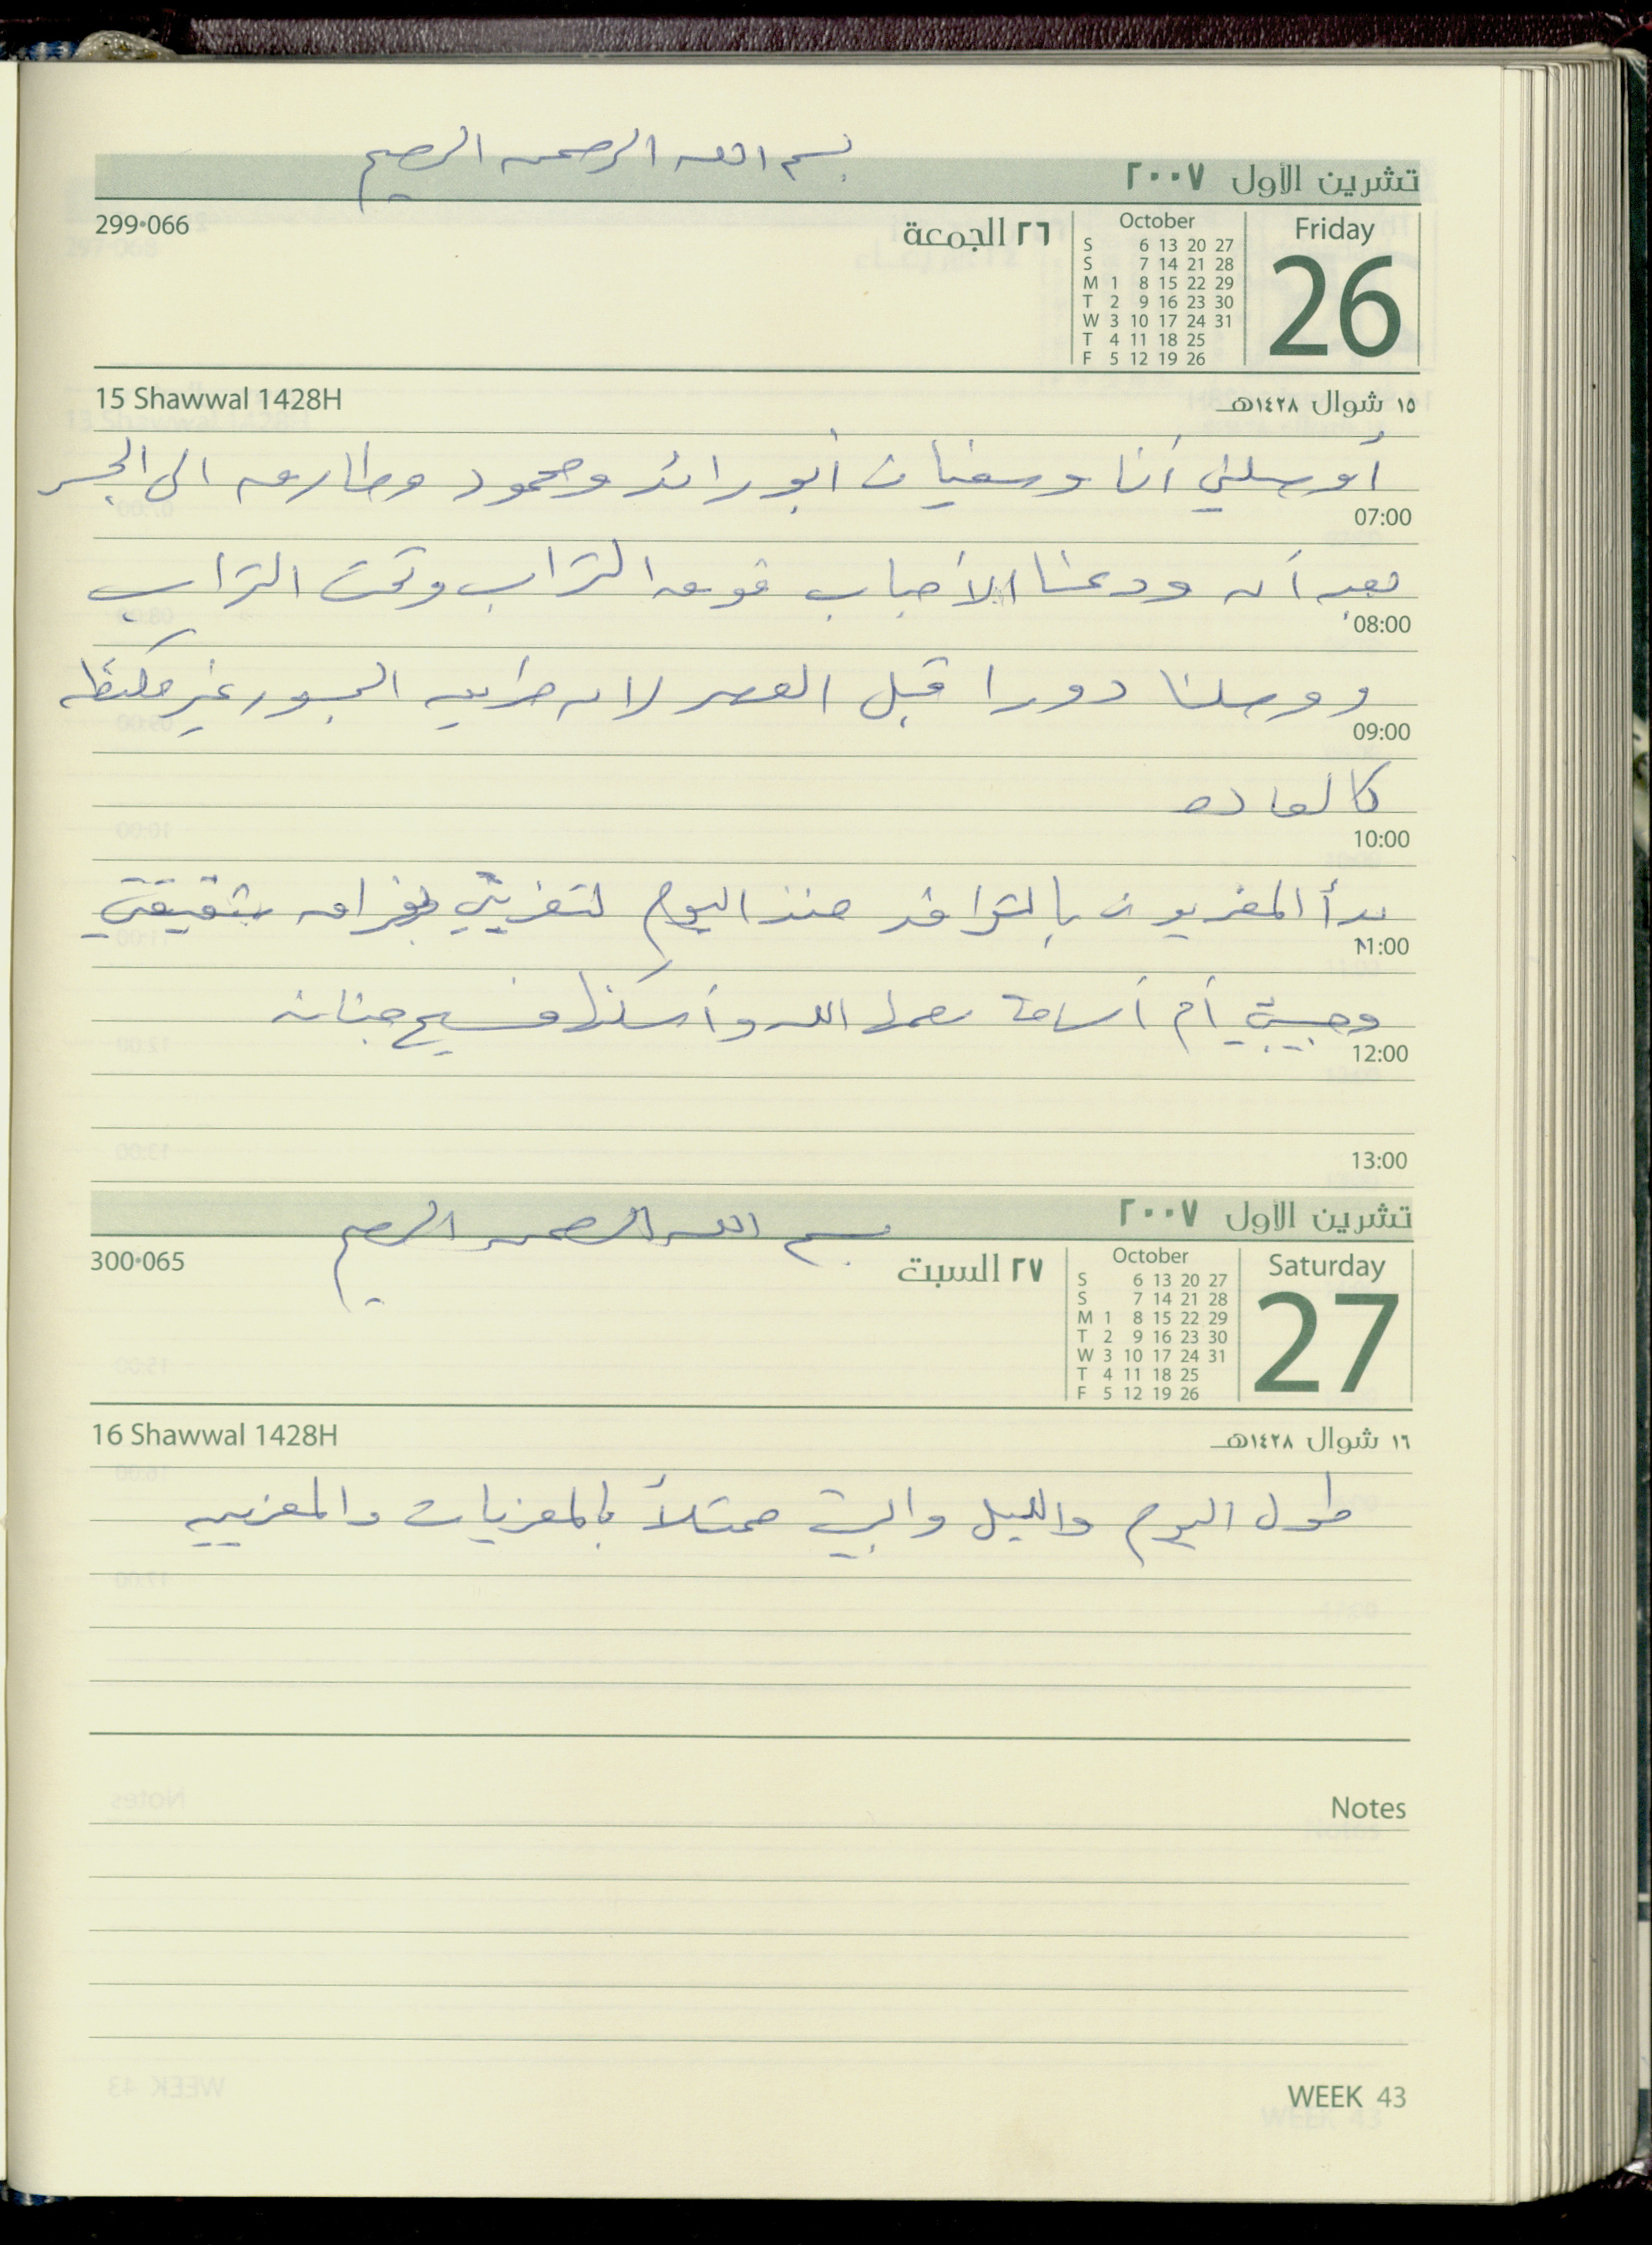 بسم الله الرحمن الرحيم
تشرين الأول ٢٠٠٧
299•066
٢٦ الجمعة
October
S 6 13 20 27
S 7 14 21 28
M 1 8 15 22 29
T 2 9 16 23 30
W 3 10 17 24 31
T 4 11 18 25
F 5 12 19 26
Friday
26
15 Shawwal 1428H
١٥ شوال ١٤٢٨هـ
أوصلني أنا وسفيان أبو رائد ومحمود وطارق الى الجسر
07:00
بعد أن ودعنا الأحباب فوق التراب وتحت التراب
08:00
ووصلنا دورا قبل العصر لان طريق الجسور غير مكتظه
09:00
كالعاده
10:00
بدأ المعزيون بالتوافد منذ اليوم لتعزيتي بفراق شقيقتي
11:00
وحبيبتي أم أسامة رحمها الله وأسكنها فسيح جنانه
12:00
13:00
بسم الله الرحمن الرحيم
تشرين الأول ٢٠٠٧
300•065
٢٧ السبت
October
S 6 13 20 27
S 7 14 21 28
M 1 8 15 22 29
T 2 9 16 23 30
W 3 10 17 24 31
T 4 11 18 25
F 5 12 19 26
Saturday
27
16 Shawwal 1428H
١٦ شوال ١٤٢٨هـ
طول اليوم والليل والبيت ممتلأ بالمعزيات والمعزيين
Notes
WEEK 43